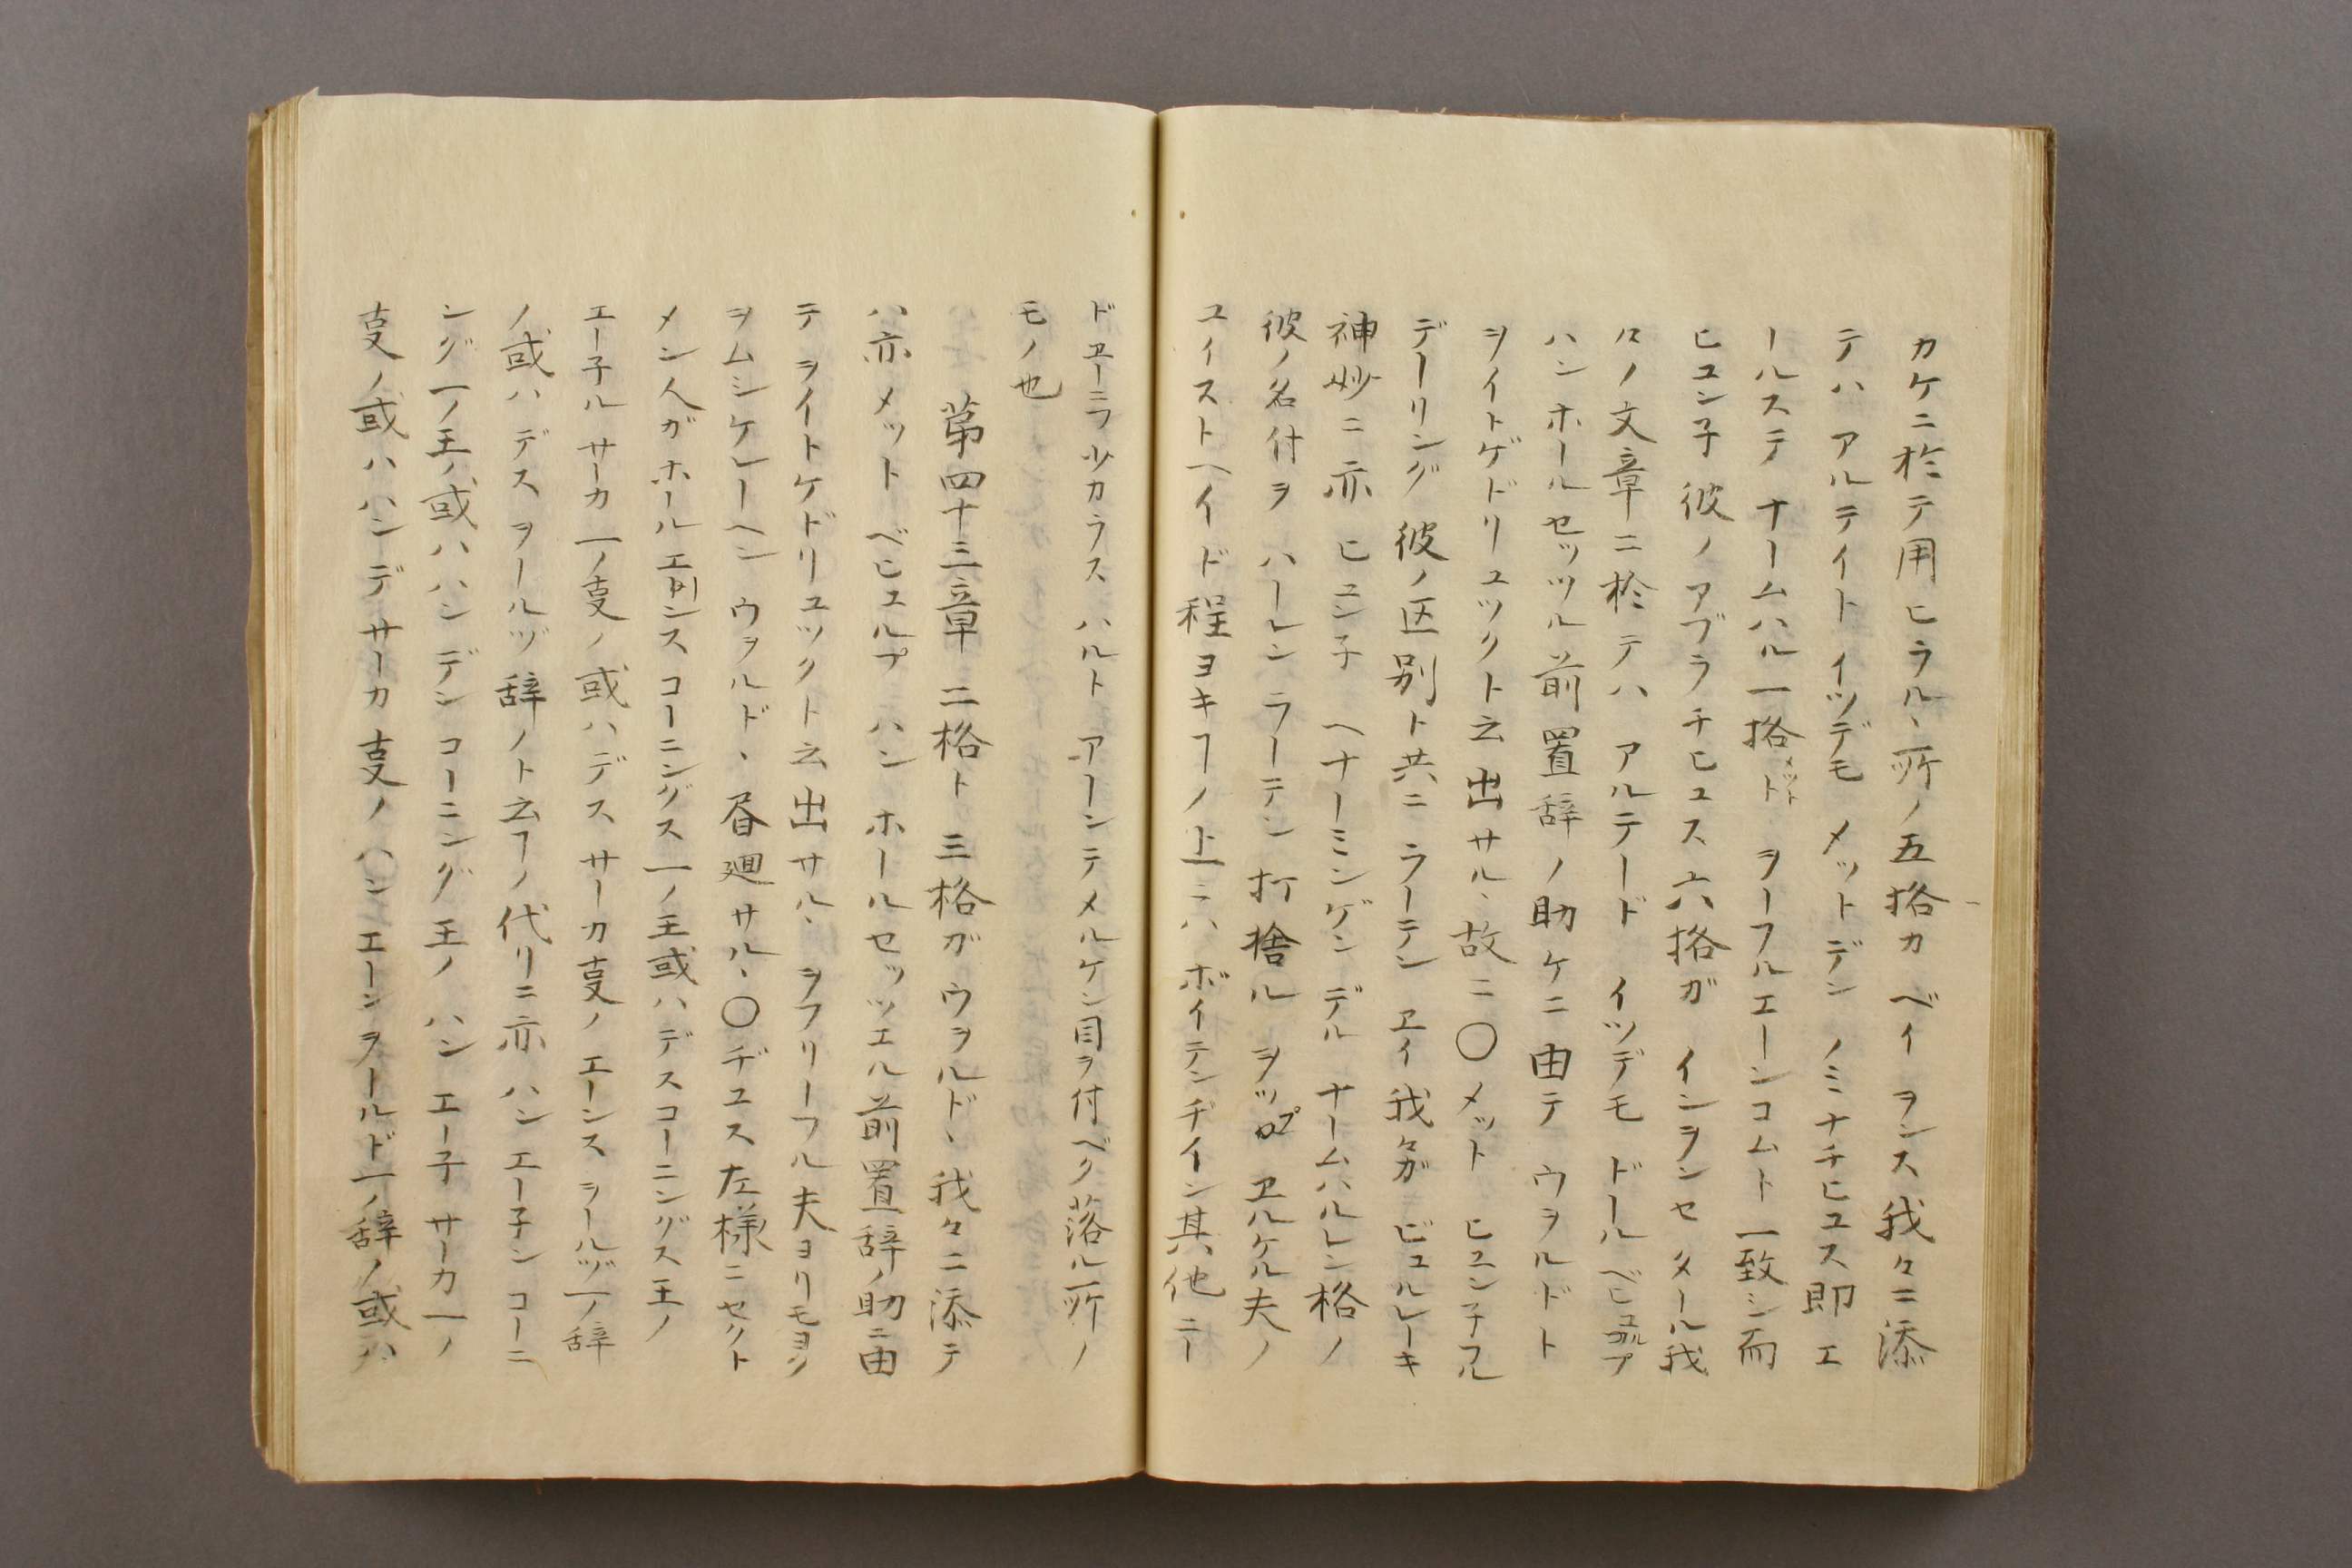 カケニ於テ用ヒラル、所ノ五挌カ ベイ ヲンス 我々ニ添
テハ アルテイト イツデモ メットデン ノミナチヒユス 即 エ
ールステ ナームハル一挌ト メット ヲーフルエーンコムト 一致シ而
ヒユン子 彼ノアブラチヒユス 六挌ガ インヲンセ タール我
々ノ文章ニ於テハ アルテード イツデモ ドール ベヒユルプ
ハン ホールセッツル前置辞ノ助ケニ由テ ウヲルドト
ヲイトゲドリユツクト云出サル、故ニ〇メット ヒユンチフル
デーリング 彼ノ区別ト共ニ ラーテン ヱイ 我々ガ ビユルレーキ
神妙ニ亦 ヒユン子 ヘナーミンゲン デル ナームハルレン格ノ
彼ノ名付ヲ ハーレン ラーテン 打捨ル ヲツプ ヱルケル夫ノ
ユイストヘイド程ヨキヿノ上ニハ ボイテンヂイン其他ニー
ドヱーニフ少カラス ハルト アーンテメルケン目ヲ付ベク落ル所ノ
モノ也
第四十三章 二格ト三格ガ ウヲルド、我々ニ添テ
ハ亦メット ベヒユルプ ハン ホールセッツエル前置辞ノ助ニ由
テ ヲイトケドリユツクト云出サル、ヲフリーフル夫ヨリモヨク
ヲムシケレーヘン ウヲルド、昏廻サル、〇ヂユス左様ニセクト
メン人ガホール エーンス コーニングス一ノ王或ハデスコーニングス王ノ
エー子ル サーカ一ノ㕝ノ或ハデス サーカ㕝ノ エーンス ヲールヅ一ノ辞
ノ或ハ デス ヲールヅ 辞ノト云ヿノ代リニ亦 ハン エー子ン コーニ
ング一ノ王ノ或ハハン デン コーニング王ノ ハン エー子 サーカ一ノ
㕝ノ或ハ ハン デ サーカ㕝ノ ハン エーン ヲールド一ノ辞ノ或ハ